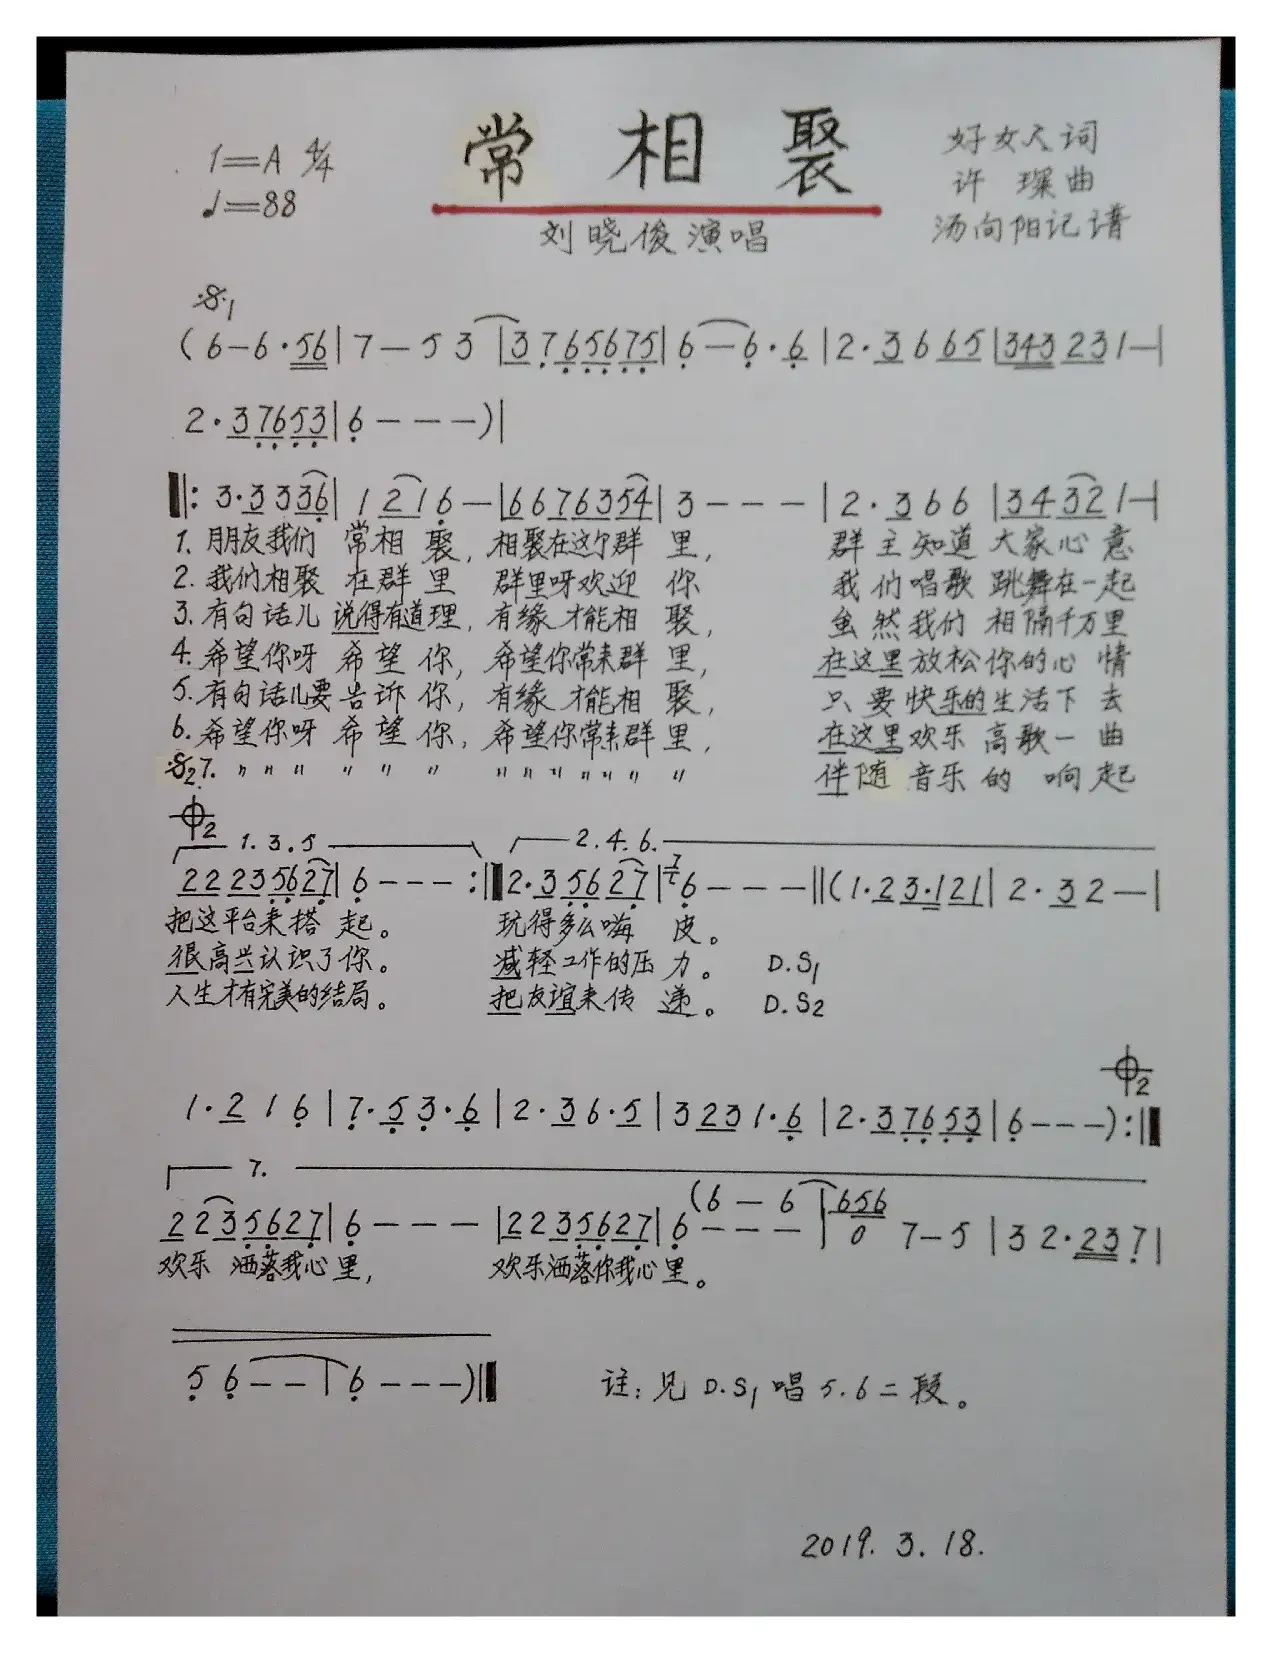 常相聚
1=A 4/4
♩=88
好女人词
许琛曲
汤向阳记谱
刘晓俊演唱
𝄋1
(6-6·56|7-53|3765675|6-6·6|2·3665|343231-|
2·37653|6---)|
‖:3·3336|1216-|6676354|3---|2·366|34321-|
1.朋友我们 常相聚,相聚在这个群里, 群主知道大家心意
2.我们相聚 在群里 群里呀欢迎你 我们唱歌跳舞在一起
3.有句话儿 说得有道理,有缘才能相聚, 虽然我们相隔千万里
4.希望你呀 希望你,希望你常来群里, 在这里放松你的心情
5.有句话儿要告诉你,有缘才能相聚, 只要快乐的生活下去
6.希望你呀 希望你,希望你常来群里, 在这里欢乐高歌一曲
𝄋2 7. " " " " " " " " " " " " " 伴随音乐的响起
𝄌2
1.3.5 2.4.6.
22235627|6---:‖2·35627|7/6---‖(1·23·121|2·32-|
把这平台来搭起。 玩得多么嗨皮。
很高兴认识了你。 减轻工作的压力。 D.S1
人生才有完美的结局。 把友谊来传递。 D.S2
𝄌2
1·216|7·53·6|2·36·5|3231·6|2·37653|6---):‖
7.
(6-6|656
2235627|6---|2235627|6---|0 7-5|32·237|
欢乐洒落我心里, 欢乐洒落你我心里。
56--|6---)‖
注:见D.S1唱5.6二段。
2019.3.18.